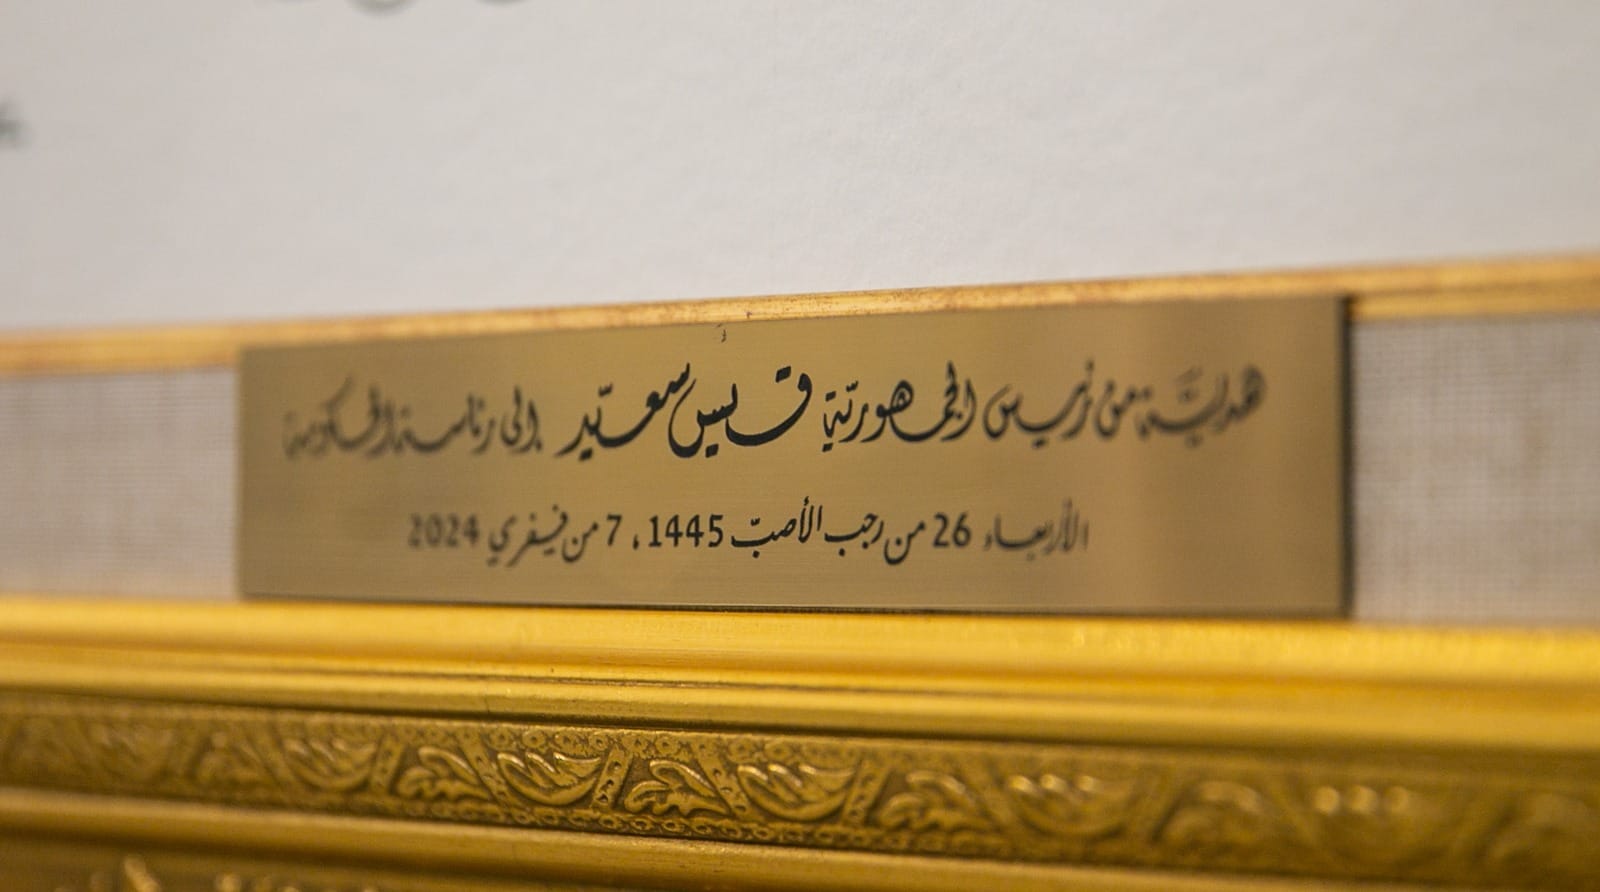 هديّة من رئيس الجمهوريّة قيس سعيّد إلى رئاسة الحكومة
الأربعاء 26 من رجب الأصبّ 1445، 7 من فيفري 2024